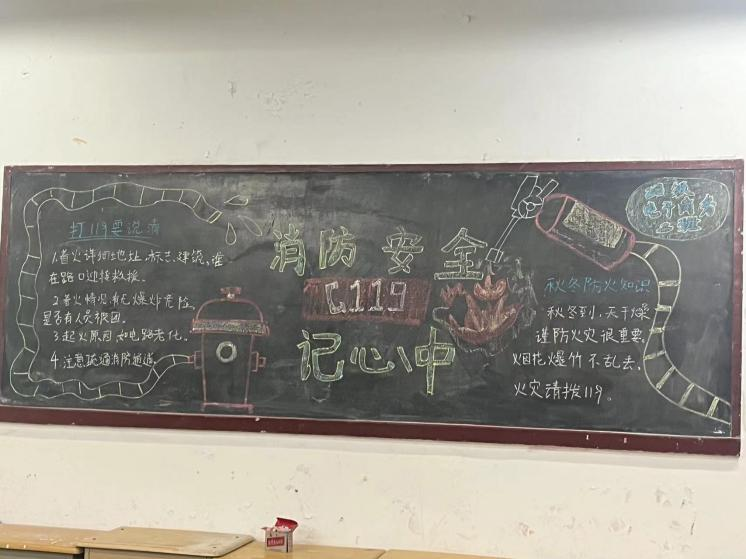 打119要说清
1.着火详细地址,标志、建筑,谁
在路口迎接救援。
2.着火情况,有无爆炸危险,
是否有人员被困。
3.起火原因,如电路老化。
4.注意疏通消防通道。
消防安全
119
记心中
电子商务
秋冬防火知识
秋冬到,天干燥
谨防火灾很重要
烟花爆竹不乱去,
火灾请拨119。